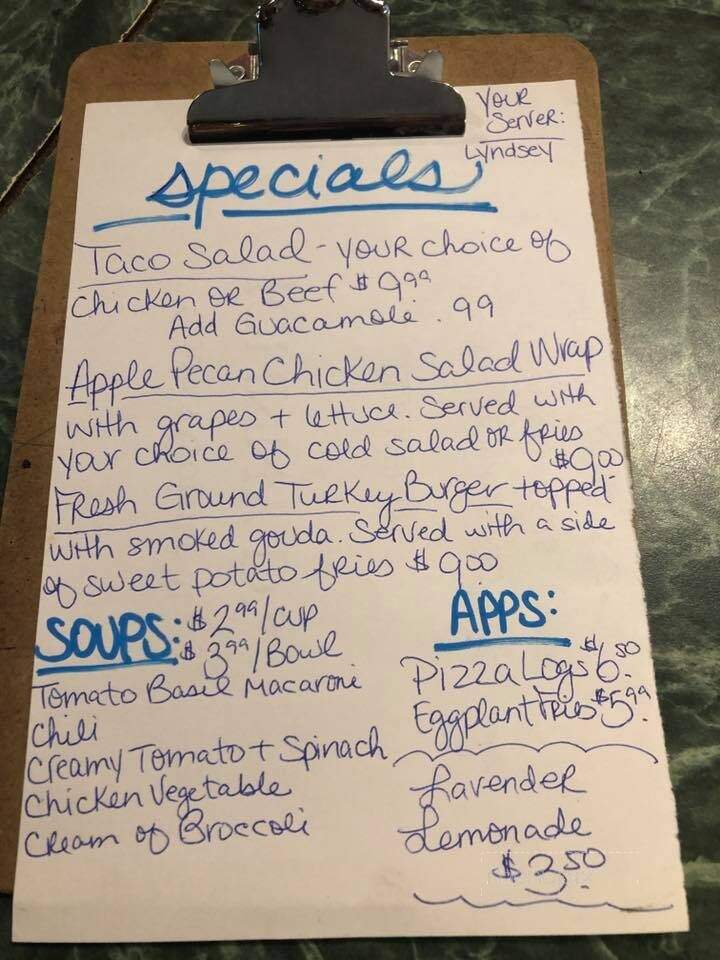 Your
Server:
Lyndsey
Specials
Taco Salad - your choice of
chicken or Beef $9.99
Add Guacamole .99
Apple Pecan Chicken Salad Wrap
with grapes + lettuce. Served with
your choice of cold salad or fries
$9.00
Fresh Ground Turkey Burger topped
with smoked gouda. Served with a side
of sweet potato fries $9.00
SOUPS: $2.99/cup
$3.99/Bowl
Tomato Basil Macaroni
Chili
Creamy Tomato + Spinach
Chicken Vegetable
Cream of Broccoli
APPS:
Pizza Logs $6.50
Eggplant Fries $5.99
Lavender
Lemonade
$3.50